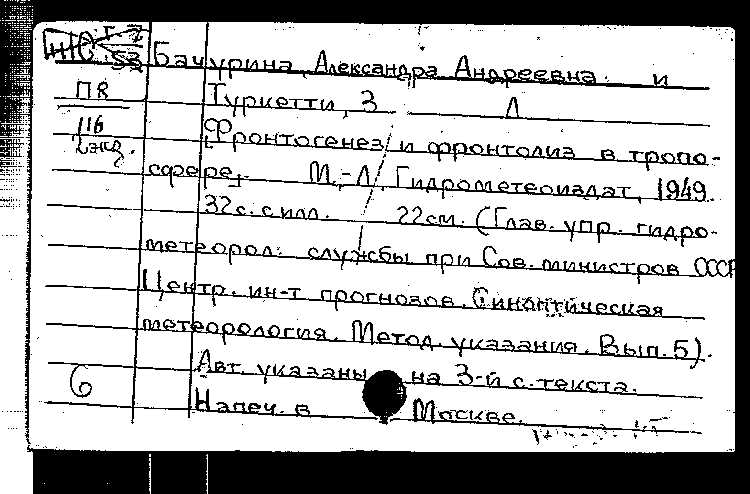 Бачурина, Александра Андреевна и
ПR Туркетти, З Л
116 Фронтогенез и фронтолиз в тропо-
2 экз. сфере. М.-Л, Гидрометеоиздат, 1949.
32с. с илл. 22см. (Глав. упр. гидро-
метеорол. службы при Сов. министров СССР
Центр. ин-т прогнозов. Синоптическая
метеорология. Метод. указания. Вып. 5).
Авт. указаны на 3-й с. текста.
6 Напеч. в Москве.